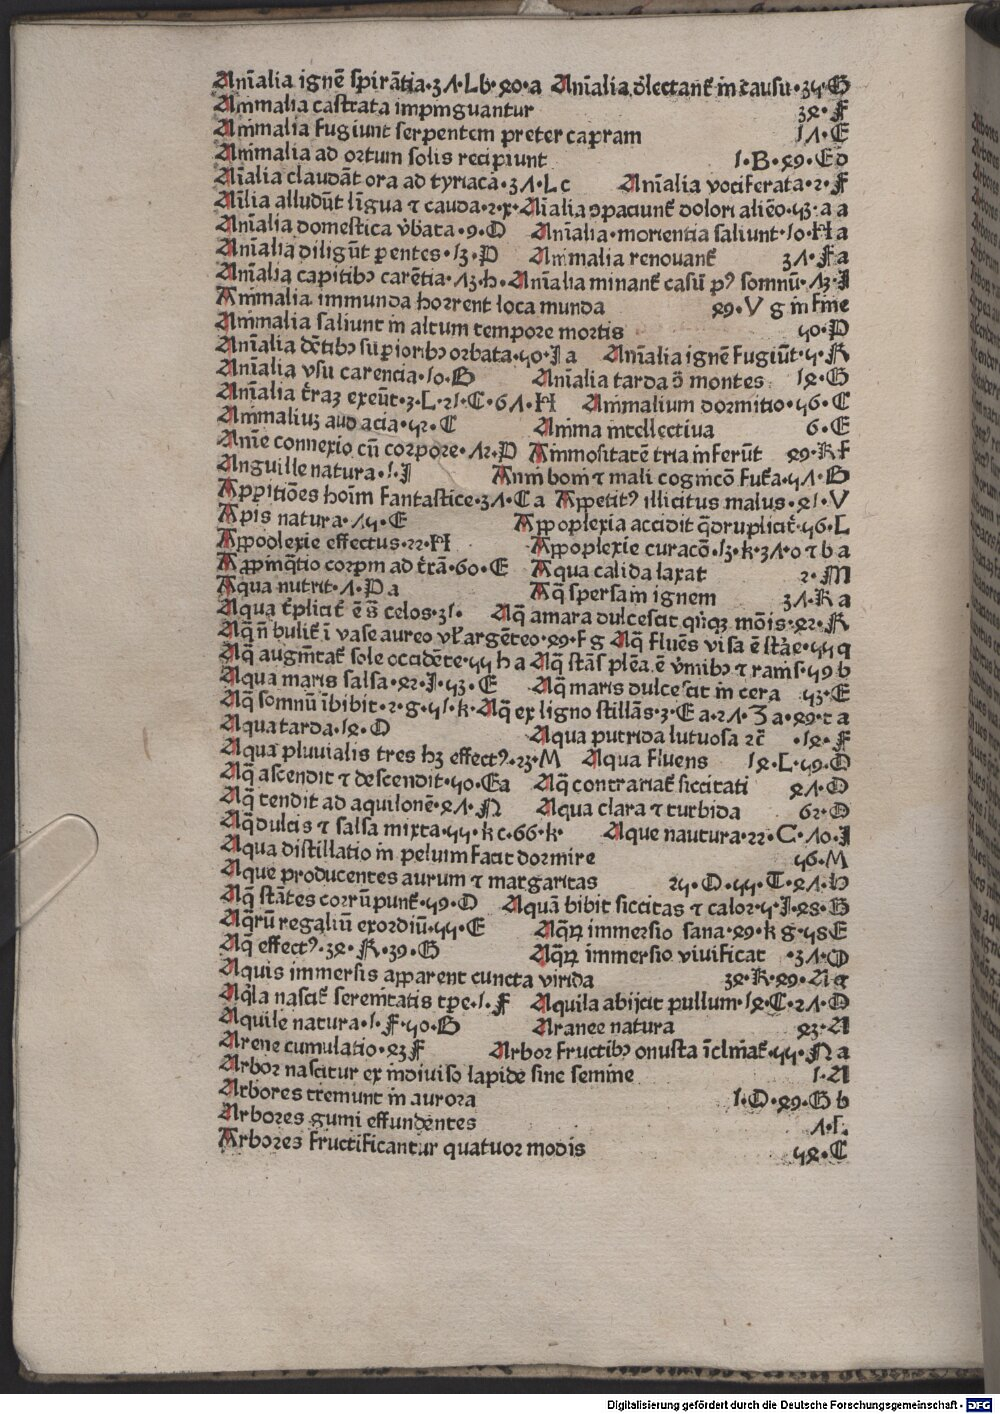 Anīalia ignē spirātia·31·Lb·80·a Anīalia dlectant̄ in cāusu·35·G
Animalia castrata inpinguantur 38·F
Animalia fugiunt serpentem preter capram 11·E
Animalia ad ortum solis recipiunt 1·B·89·Ed
Aīalia claudāt ora ad tyriacā·31·Lc Anīalia vociferata·2·F
Aīlia alludūt līgua ⁊ cauda·2·x·Aīalia ɔpaciunt̄ dolori aliēo·53·aa
Anīalia domestica v̄bata·9·O Anīalia·morientia saliunt·10·Ha
Anīalia diligūt pentes·13·P Animalia renouant̄ 31·Fa
Anīalia capitibꝫ carētia·13·h·Anīalia minant̄ casū pꝰ somnū·13·I
Animalia immunda horrent loca munda 89·V g in fine
Animalia saliunt in altum tempore mortis 50·P
Anīalia dētibꝫ supioribꝫ orbata·50·Ia Anīalia ignē fugiūt·5·K
Anīalia vsu carencia·10·B Anīalia tarda ɔ̄ montes 18·G
Anīalia t̄raꝫ exeūt·3·L·21·C·61·H Animalium dormitio·56·C
Animaliuꝫ audacia·52·C Anima intellectiua 6·E
Anīe connexio cū corpore·12·P Animositatē tria inferūt 89·Kf
Anguille natura·1·I Anim boni ⁊ mali cogicōm fut̄a·51·B
Appitiōes hoīm fantastice·31·Ca Appetitꝰ illicitus malus·81·V
Apis natura·15·E Appoplexia accidit q̄druplicit̄·56·L
Appodlexie effectus·22·H Appoplexie curacō·13·k·31·o ⁊ b a
Appinq̄tio corpm ad t̄rā·60·E Aqua calida laxat 2·M
Aqua nutrit·1·Pa Aq̄ spersa in ignem 31·Ka
Aqua t̄plicit̄ ē s̄ celos·31· Aq̄ amara dulcescit qn̄qꝫ mōis·82·K
Aq̄ n̄ bulit̄ ī vase aureo vl̓ argēteo·89·fg Aq̄ fluēs visa ē stāre·55q
Aq̄ augm̄tat̄ sole occidēte·55ha Aq̄ stās̄ plēa ē v̄mibꝫ ⁊ ranis·59b
Aqua maris salsa·82·I·53·E Aq̄ maris dulcescit in cera 53·E
Aq̄ somnū ībibit·2·g·51·k·Aq̄ ex ligno stillās·3·Ea·21·Za·89·ta
Aqua tarda·18·O Aqua putrida lutuosa ⁊c̄ ·18·F
Aqua pluuialis tres hꝫ effectꝰ·23·M Aqua fluens 18·L·59·O
Aq̄ ascendit ⁊ descendit·50·Ea Aq̄ contrariat̄ siccitati 81·O
Aq̄ tendit ad aquilonē·81·N Aqua clara ⁊ turbida 62·O
Aq̄ dulcis ⁊ salsa mixta·55·kc·66·k· Aque nautura·22·C·10·I
Aqua distillatio in peluim facit dormire 56·M
Aque producentes aurum ⁊ margaritas 25·O·55·T·81·b
Aq̄ stātes corrūpunt̄·59·O Aquā bibit siccitas ⁊ calor·5·I·88·G
Aq̄rū regaliū exordiū·55·E Aq̄ꝝ immersio sana·89·kg·58E
Aq̄ effectꝰ·38·K·39·G Aq̄ꝝ immersio viuificat ·31·O
Aquis immersis apparent cuncta virida 38·K·89·Aq
Aq̄la nascit̄ serenitatis tpe·1·F Aquila abijcit pullum·18·C·21·O
Aquile natura·1·F·50·B Aranee natura 83·A
Arene cumulatio·83F Arbor fructibꝫ onusta īclinat̄·55·Na
Arbor nascitur ex indiuiso lapide sine semine 1·A
Arbores tremunt in aurora 1·O·89·Gb
Arbores gumi effundentes 1·L
Arbores fructificantur quatuor modis 58·C
Digitalisierung gefördert durch die Deutsche Forschungsgemeinschaft - DFG